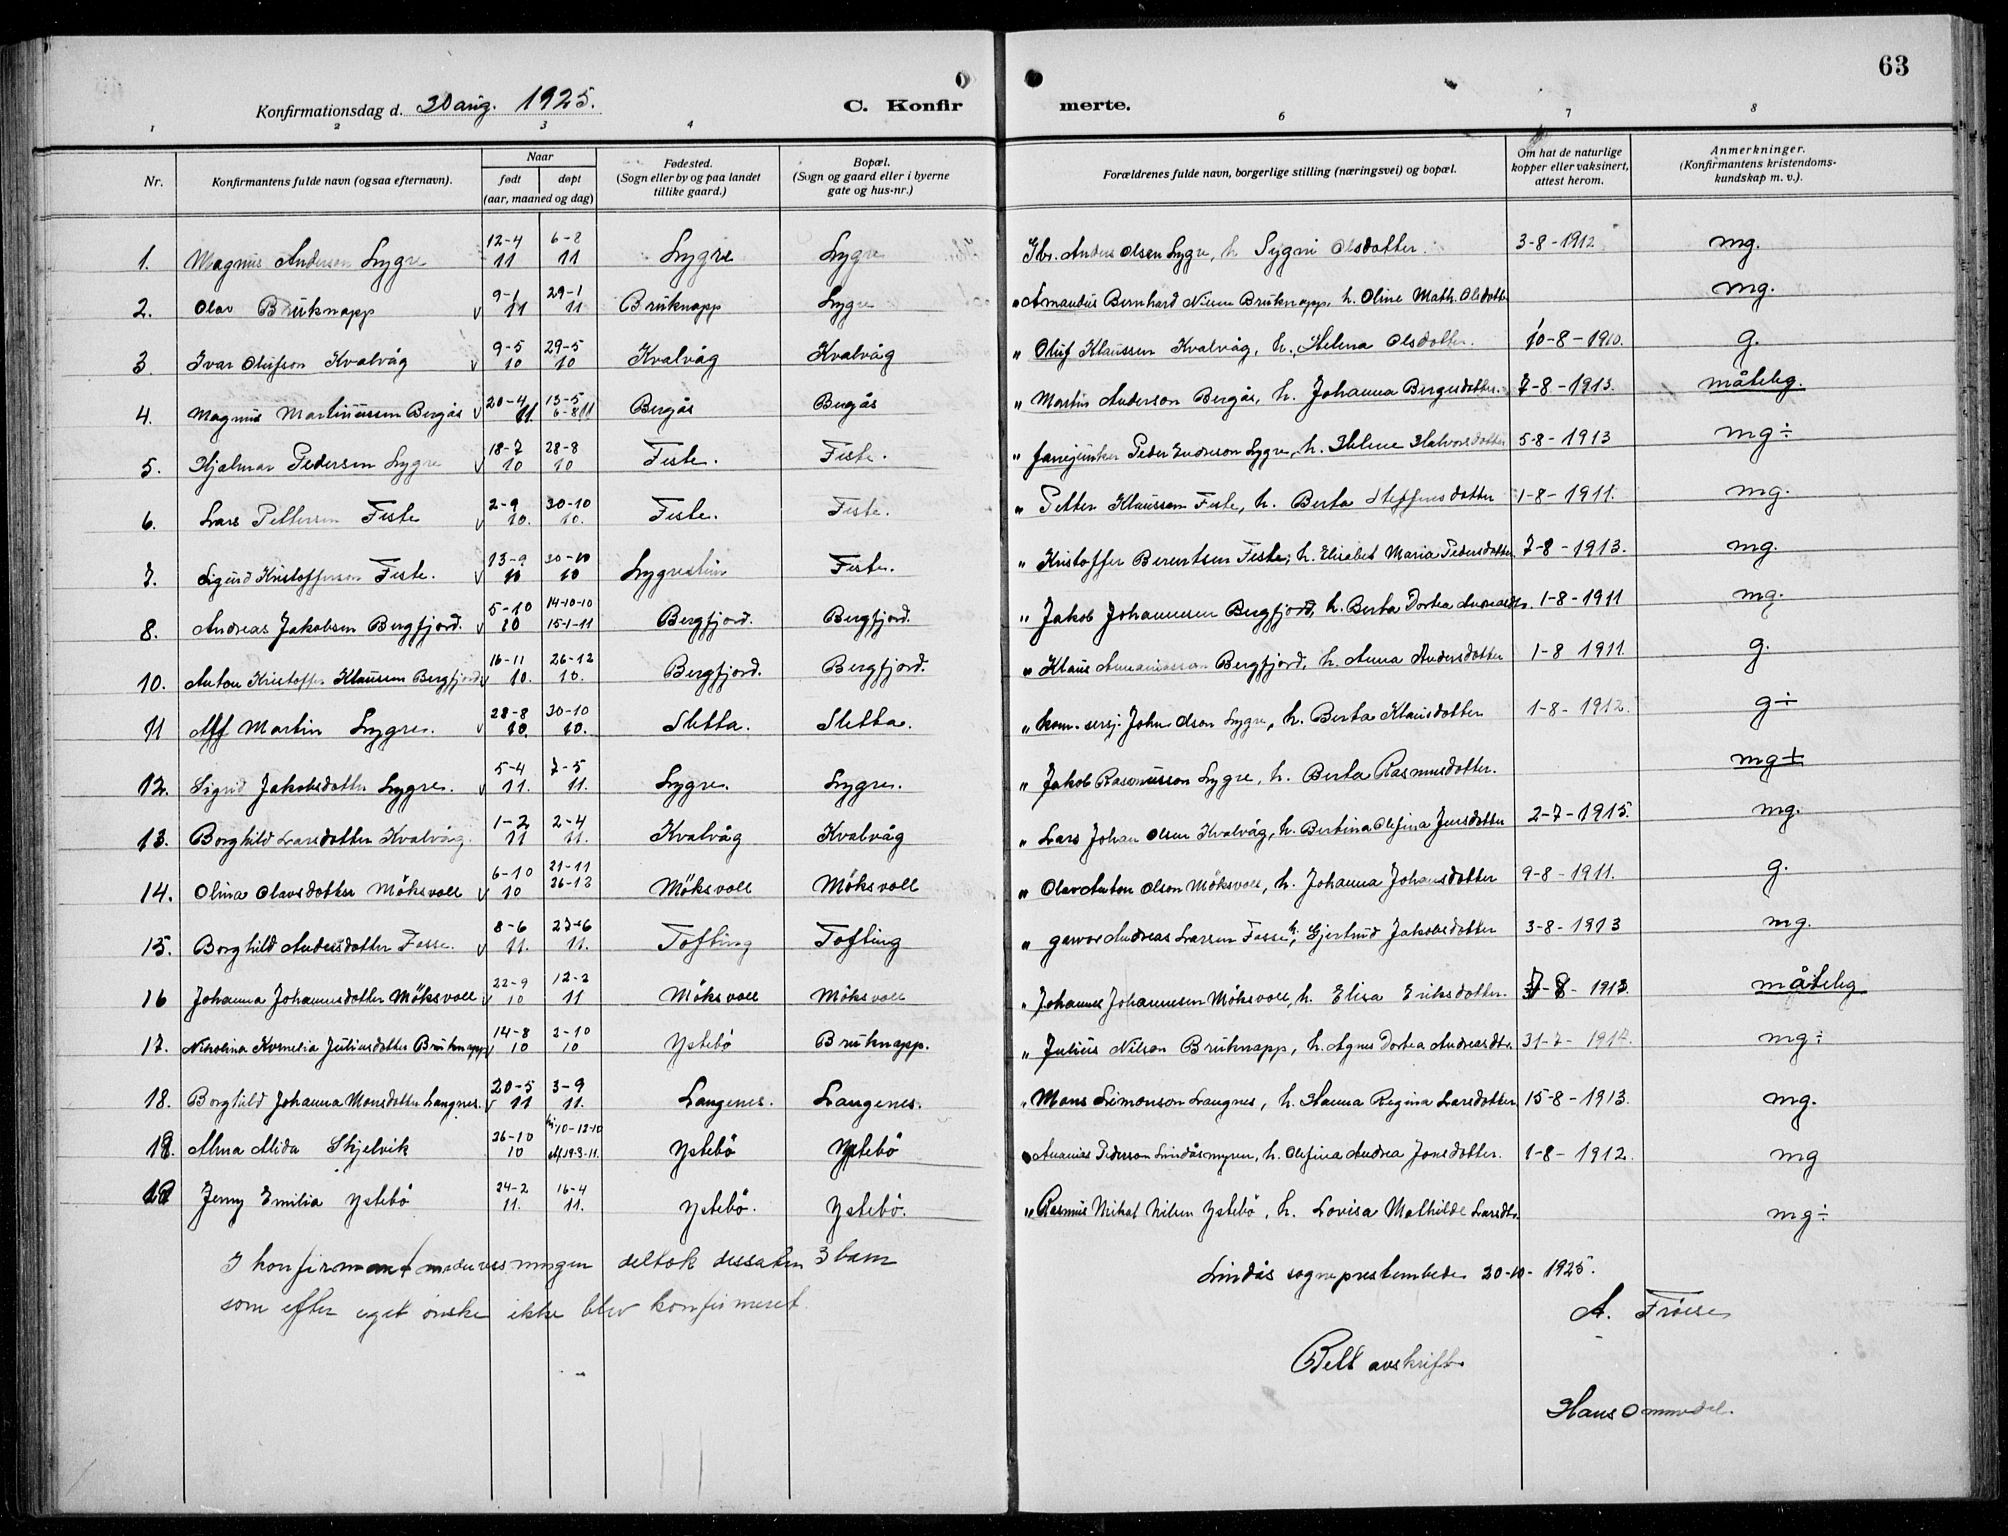 63
Konfirmationsdag d. 30 aug. 1925.
C. Konfirmerte.
1 2 3 4 6 7 8
Nr. Konfirmantens fulde navn (ogsaa efternavn). Naar født døpt (aar, maaned og dag) Fødested. (Sogn eller by og paa landet tillike gaard.) Bopæl. (Sogn og gaard eller i byerne gate og hus-nr.) Forældrenes fulde navn, borgerlige stilling (næringsvei) og bopæl. Om hat de naturlige kopper eller vaksinert, attest herom. Anmerkninger. (Konfirmantens kristendomskundskap m. v.).
1. Magnus Anderson Lygre 12-4 11 6-8 11 Lygre Lygre Gbr. Anders Olsen Lygre, h. Sygni Olsdotter. 3-8-1912 mg.
2. Olav Bruknapp v 9-1 11 29-1 11 Bruknapp Lygre " Amandus Bernhard Nilsen Bruknapp, h. Oline Math. Olsdotter mg.
3. Ivar Olufson Kvalvåg v 9-5 10 29-5 10 Kvalvåg Kvalvåg " Oluf Klaussen Kvalvåg, h. Helena Olsdotter. 10-8-1910. g.
4. Magnus Martinussen Bergås v 20-4 11. 13-5 6-8 11 Bergås Bergås " Martin Anderson Bergås, h. Johanna Bergesdotter. 7-8-1913. måtelig.
5. Hjalmar Pedersen Lygre v 18-7 10 28-8 10 Feste. Feste. " Peder Endreson Lygre, h. Helene Halvorsdotter 5-8-1913 mg÷
6. Lars Pettersen Feste v 2-9 10. 30-10 10. Feste. Feste. " Petter Klaussen Feste, h. Berta Steffensdotter 1-8-1911. mg.
7. Sigurd Kristofferson Feste. v 13-9 10 30-10 10 Feste. " Kristoffer Berentsen Feste, h. Elisabet Maria Pedersdotter 7-8-1913. mg.
8. Andreas Jakobsen Bergfjord. v 5-10 10 14-10-10 15-1-11 Bergfjord. Bergfjord. " Jakob Johannesen Bergfjord, h. Berta Dortea Andreasdtr. 1-8-1911 mg.
10. Anton Kristoffer Klausen Bergfjord v 16-11 10. 26-12 10. Bergfjord. Bergfjord. " Klaus Ananiassen Bergfjord, h. Anna Andersdotter 1-8 1911. g.
11 Alf Martin Lygre. v 28-8 10. 30-10 10. Sletta. Sletta. " kom. sersj. John Olson Lygre, h. Berta Klausdotter 1-8-1912. g÷
12. Sigrid Jakobsdotter Lygre. v 5-4 11. 7-5 11. Lygre. Lygre. " Jakob Rasmusson Lygre, h. Berta Rasmusdotter. mg÷
13. Borghild Larsdotter Kvalvåg. 1-2 11 2-4 11. Kvalvåg Kvalvåg " Lars Johan Olsen Kvalvåg, h. Bertina Olefina Jensdotter 2-7-1915. mg.
14. Olina Olavsdotter Möksvoll v 6-10 10 21-11 26-12 Möksvoll Möksvoll " Olav Anton Olson Möksvoll, h. Johanna Johansdotter 9-8-1911. g.
15. Borghild Andersdotter Fosse. v 8-6 11. 27-6 11. Tofting Tofting " garver Andreas Larsen Fosse, h. Gjertrud Jakobsdotter 3-8-1913 mg.
16 Johanna Johannesdotter Möksvoll v 22-9 10 12-2 11 Möksvoll Möksvoll " Johannes Johannesen Möksvoll, h. Elisa Eriksdotter. 7-8-1913. måtelig
17. Nikolina Kornelia Juliusdotter Bruknapp v 14-8 10 2-10 10 Ystebö Bruknapp. " Julius Nilson Bruknapp, h. Agnes Dortea Andreasdtr. 31-7-1914. mg÷
18. Borghild Johanna Monsdotter Langnes. v 20-5 11 3-9 11. Langenes. Langenes. " Mons Simonson Langnes, h. Hanna Regina Larsdotter 15-8-1913. mg.
19. Alma Alida Skjelvik 26-10 10 10-12-10 19-3-11. Ystebö Ystebö Ananias Pederson Lindåsmyren, h. Olefina Andrea Jonsdotter. 1-8-1912. mg
19 Jenny Emilia Ystebö 24-2 11. 16-4 11. Ystebö. Ystebö. " Rasmus Mikal Nilsen Ystebö, h. Lovisa Mathilde Larsdtr. mg÷
I konfirmantundervisningen deltok dessuten 3 barn
som efter eget ønske ikke blev konfirmeret.
Lindås sogneprestembede 20-10-1925.
A. Fröise
Rett avskrift
Hans Ommedal.